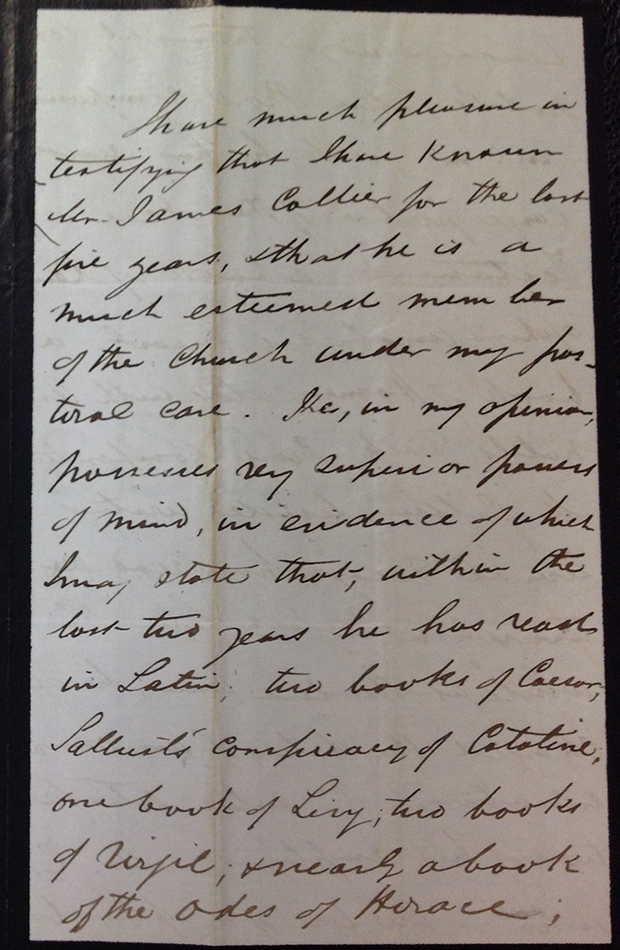 I have much pleasure in
testifying that I have known
Mr. James Collier for the last
five years, & that he is a
much esteemed member
of the Church under my pas-
toral care. He, in my opinion,
possesses very superior powers
of mind, in evidence of which
I may state that, within the
last two years he has read
in Latin; two books of Caesar,
Sallust's conspiracy of Cataline,
one book of Livy; two books
of Virgil; & nearly a book
of the Odes of Horace;